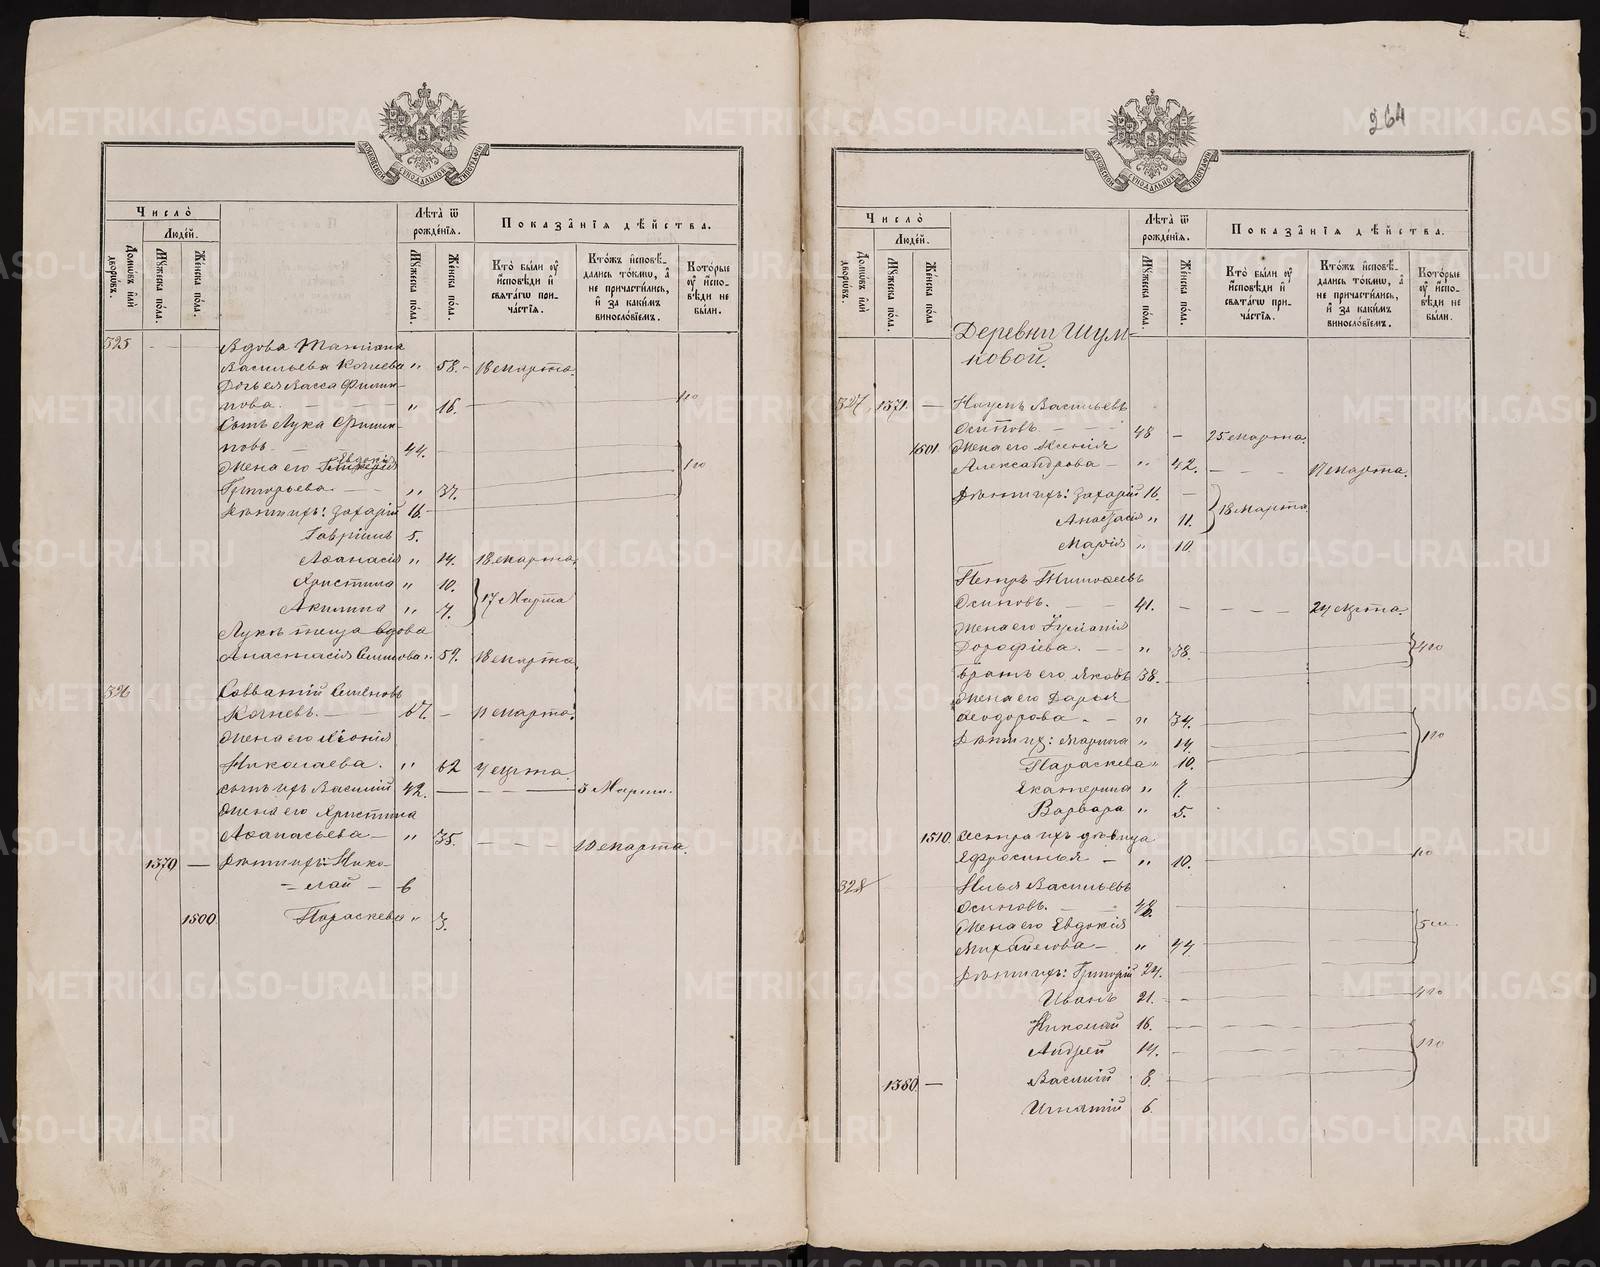 264
Число̀
Людей.
Домовъ или дворовъ.
Мужеска пола.
Женска пола.
Лѣта ѿ рожденія.
Мужеска пола.
Женска пола.
Показанія дѣйства.
Кто были у исповѣди и святагѡ причастія.
Ктожъ исповѣдались токмо, а не причастились, и за какимъ винословіемъ.
Которые у исповѣди не были.
325 Вдова Татіана
Васильева Кочнева " 58. 18 марта.
Дочь ея Васса Филип-
пова. " 16.
Сынъ Лука Филип-
повъ 44.
Жена его Евдокія
Григорьева " 37.
Дѣти ихъ: Захарій 16.
Гавріилъ 5.
Афанасія " 14. 18 марта.
Христина " 10.
Акилина " 7. 17 Марта
Луки теща вдова
Анастасія Семенова " 59. 18 марта.
326 Савватій Семеновъ
Кочневъ. 67. 11 марта.
Жена его
Николаева. " 62 4 марта.
сынъ ихъ Василій 42. 3 Марта.
Жена его Христина
Афанасьева " 35. 10 марта.
1370 Дѣти ихъ: Нико-
лай 6
1500 Параскева " 3.
Число̀
Людей.
Домовъ или дворовъ.
Мужеска пола.
Женска пола
Лѣта ѿ рожденія.
Мужеска пола.
Женска пола.
Показанія дѣйства.
Кто были у исповѣди и святагѡ причастія.
Ктожъ исповѣдались токмо, а не причастились, и за какимъ винословіемъ.
Которые у исповѣди не были.
Деревни Шум-
ковой.
327 1371. Наумъ Васильевъ
Осиповъ. 48 25 марта.
1501. Жена его Ксенія
Александрова " 42. 17 марта.
Дѣти ихъ: Захарій 16.
Анастасія " 11. 18 марта.
Марія " 10.
Петръ Тимофеевъ
Осиповъ. 41. 24 марта.
Жена его Іуліанія
Дорофіева. " 38.
Братъ его Яковъ 38.
Жена его Дарья
Феодорова " 34.
Дѣти их: Марина " 14.
Параскева " 10.
Екатерина " 7.
Варвара " 5.
1510. Сестра ихъ дѣвица
Ефросинья " 10.
328 Илья Васильевъ
Осиповъ. 48.
Жена его Евдокія
Михайлова " 44.
Дѣти ихъ: Григорій 24.
Иванъ 21.
Николай 16.
Андрей 14.
1380 Василій 8.
Игнатій 6.
METRIKI.GASO-URAL.RU